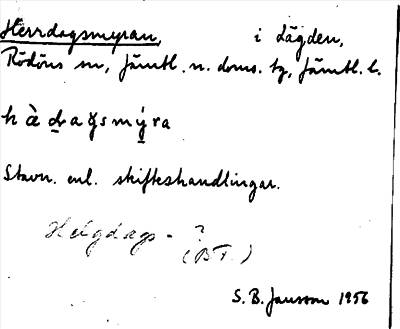 Herrdagsmyran, i Lägden,
Rödöns sn, Jämtl. n. doms. tg, Jämtl. l.
hà̱dagsmý̱ra
Stavn. enl. skifteshandlingar.
Helgdags- ?
(BT.)
S. B. Jansson 1956